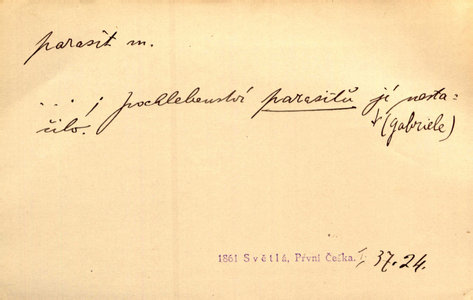 parasit m.
. . . ; pochlebenství parasitů jí nesta-
čilo.
(Gabriele)
1861 Světlá, První Češka. I, 37.24.